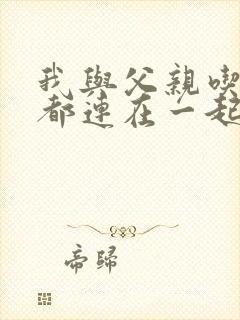 我與父親喫
都連在一起
帝歸